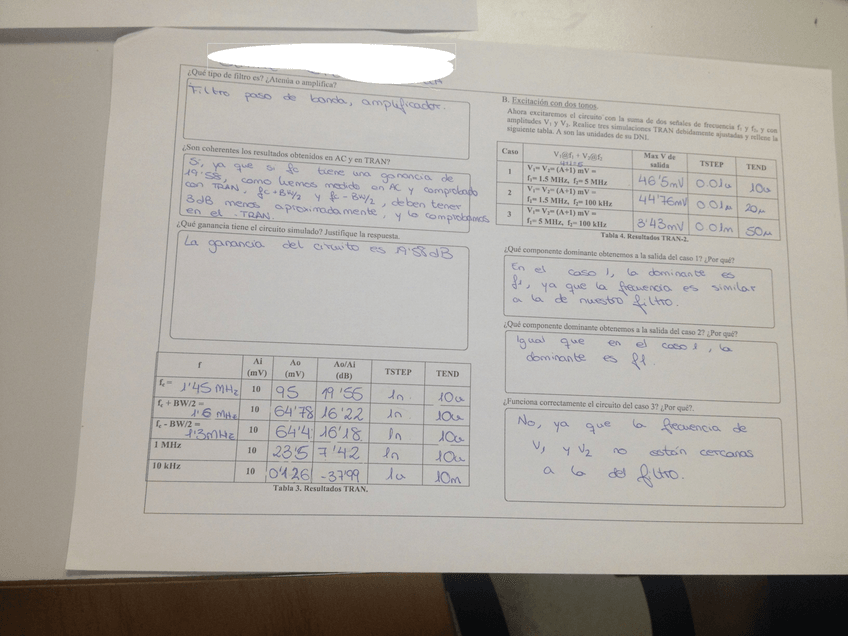 ¿Qué tipo de filtro es? ¿Atenúa o amplifica?
Filtro paso de banda, amplificador.
¿Son coherentes los resultados obtenidos en AC y en TRAN?
Sí, ya que si fc tiene una ganancia de
19'58, como hemos medido en AC y comprobado
con TRAN, fc+BW/2 y fc-BW/2, deben tener
3dB menos aproximadamente, y lo comprobamos
en el .TRAN.
¿Qué ganancia tiene el circuito simulado? Justifique la respuesta.
La ganancia del circuito es 19'58dB
f Ai (mV) Ao (mV) Ao/Ai (dB) TSTEP TEND
fc = 1'45 MHz 10 95 19'55 1n 10u
fc + BW/2 = 1'6 MHz 10 64'78 16'22 1n 10u
fc - BW/2 = 1'3MHz 10 64'4 16'18 1n 10u
1 MHz 10 23'5 7'42 1n 10u
10 kHz 10 0'126 -37'99 1u 10m
Tabla 3. Resultados TRAN.
B. Excitación con dos tonos.
Ahora excitaremos el circuito con la suma de dos señales de frecuencia f1 y f2, y con
amplitudes V1 y V2. Realice tres simulaciones TRAN debidamente ajustadas y rellene la
siguiente tabla. A son las unidades de su DNI.
Caso V1@f1 + V2@f2 Max V de salida TSTEP TEND
1 V1= V2= (A+1) mV =
f1= 1.5 MHz, f2= 5 MHz 46'5mV 0.01u 10u
2 V1= V2= (A+1) mV =
f1= 1.5 MHz, f2= 100 kHz 44'76mV 0.01u 20u
3 V1= V2= (A+1) mV =
f1= 5 MHz, f2= 100 kHz 3'43mV 0.01m 50u
Tabla 4. Resultados TRAN-2.
¿Qué componente dominante obtenemos a la salida del caso 1? ¿Por qué?
En el caso 1, la dominante es
f1, ya que la frecuencia es similar
a la de nuestro filtro.
¿Qué componente dominante obtenemos a la salida del caso 2? ¿Por qué?
Igual que en el caso 1, la
dominante es f1.
¿Funciona correctamente el circuito del caso 3? ¿Por qué?.
No, ya que la frecuencia de
V1 y V2 no están cercanas
a la del filtro.